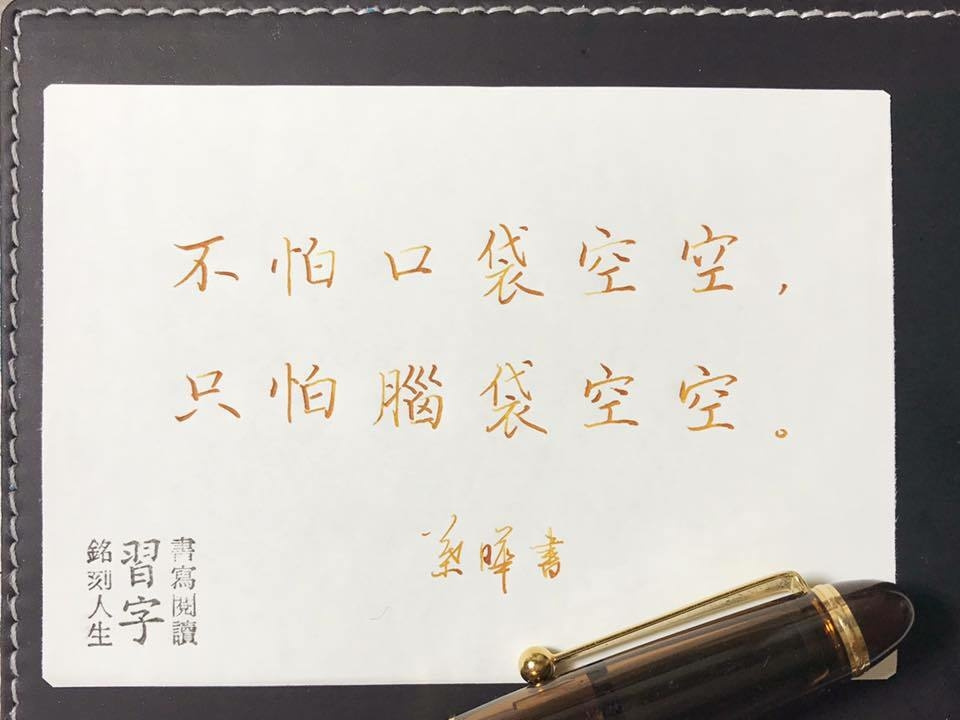 不怕口袋空空，
只怕腦袋空空。
葉曄書
書寫閱讀
習字
銘刻人生